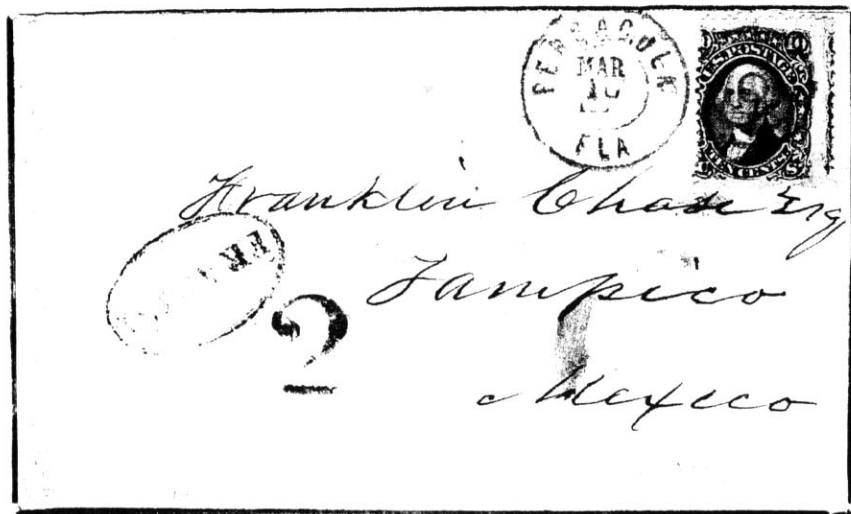 PENSACOLA
MAR
FLA
U.S. POSTAGE
TEN CENTS
Franklin Chase Esq
Tampico
2
Mexico